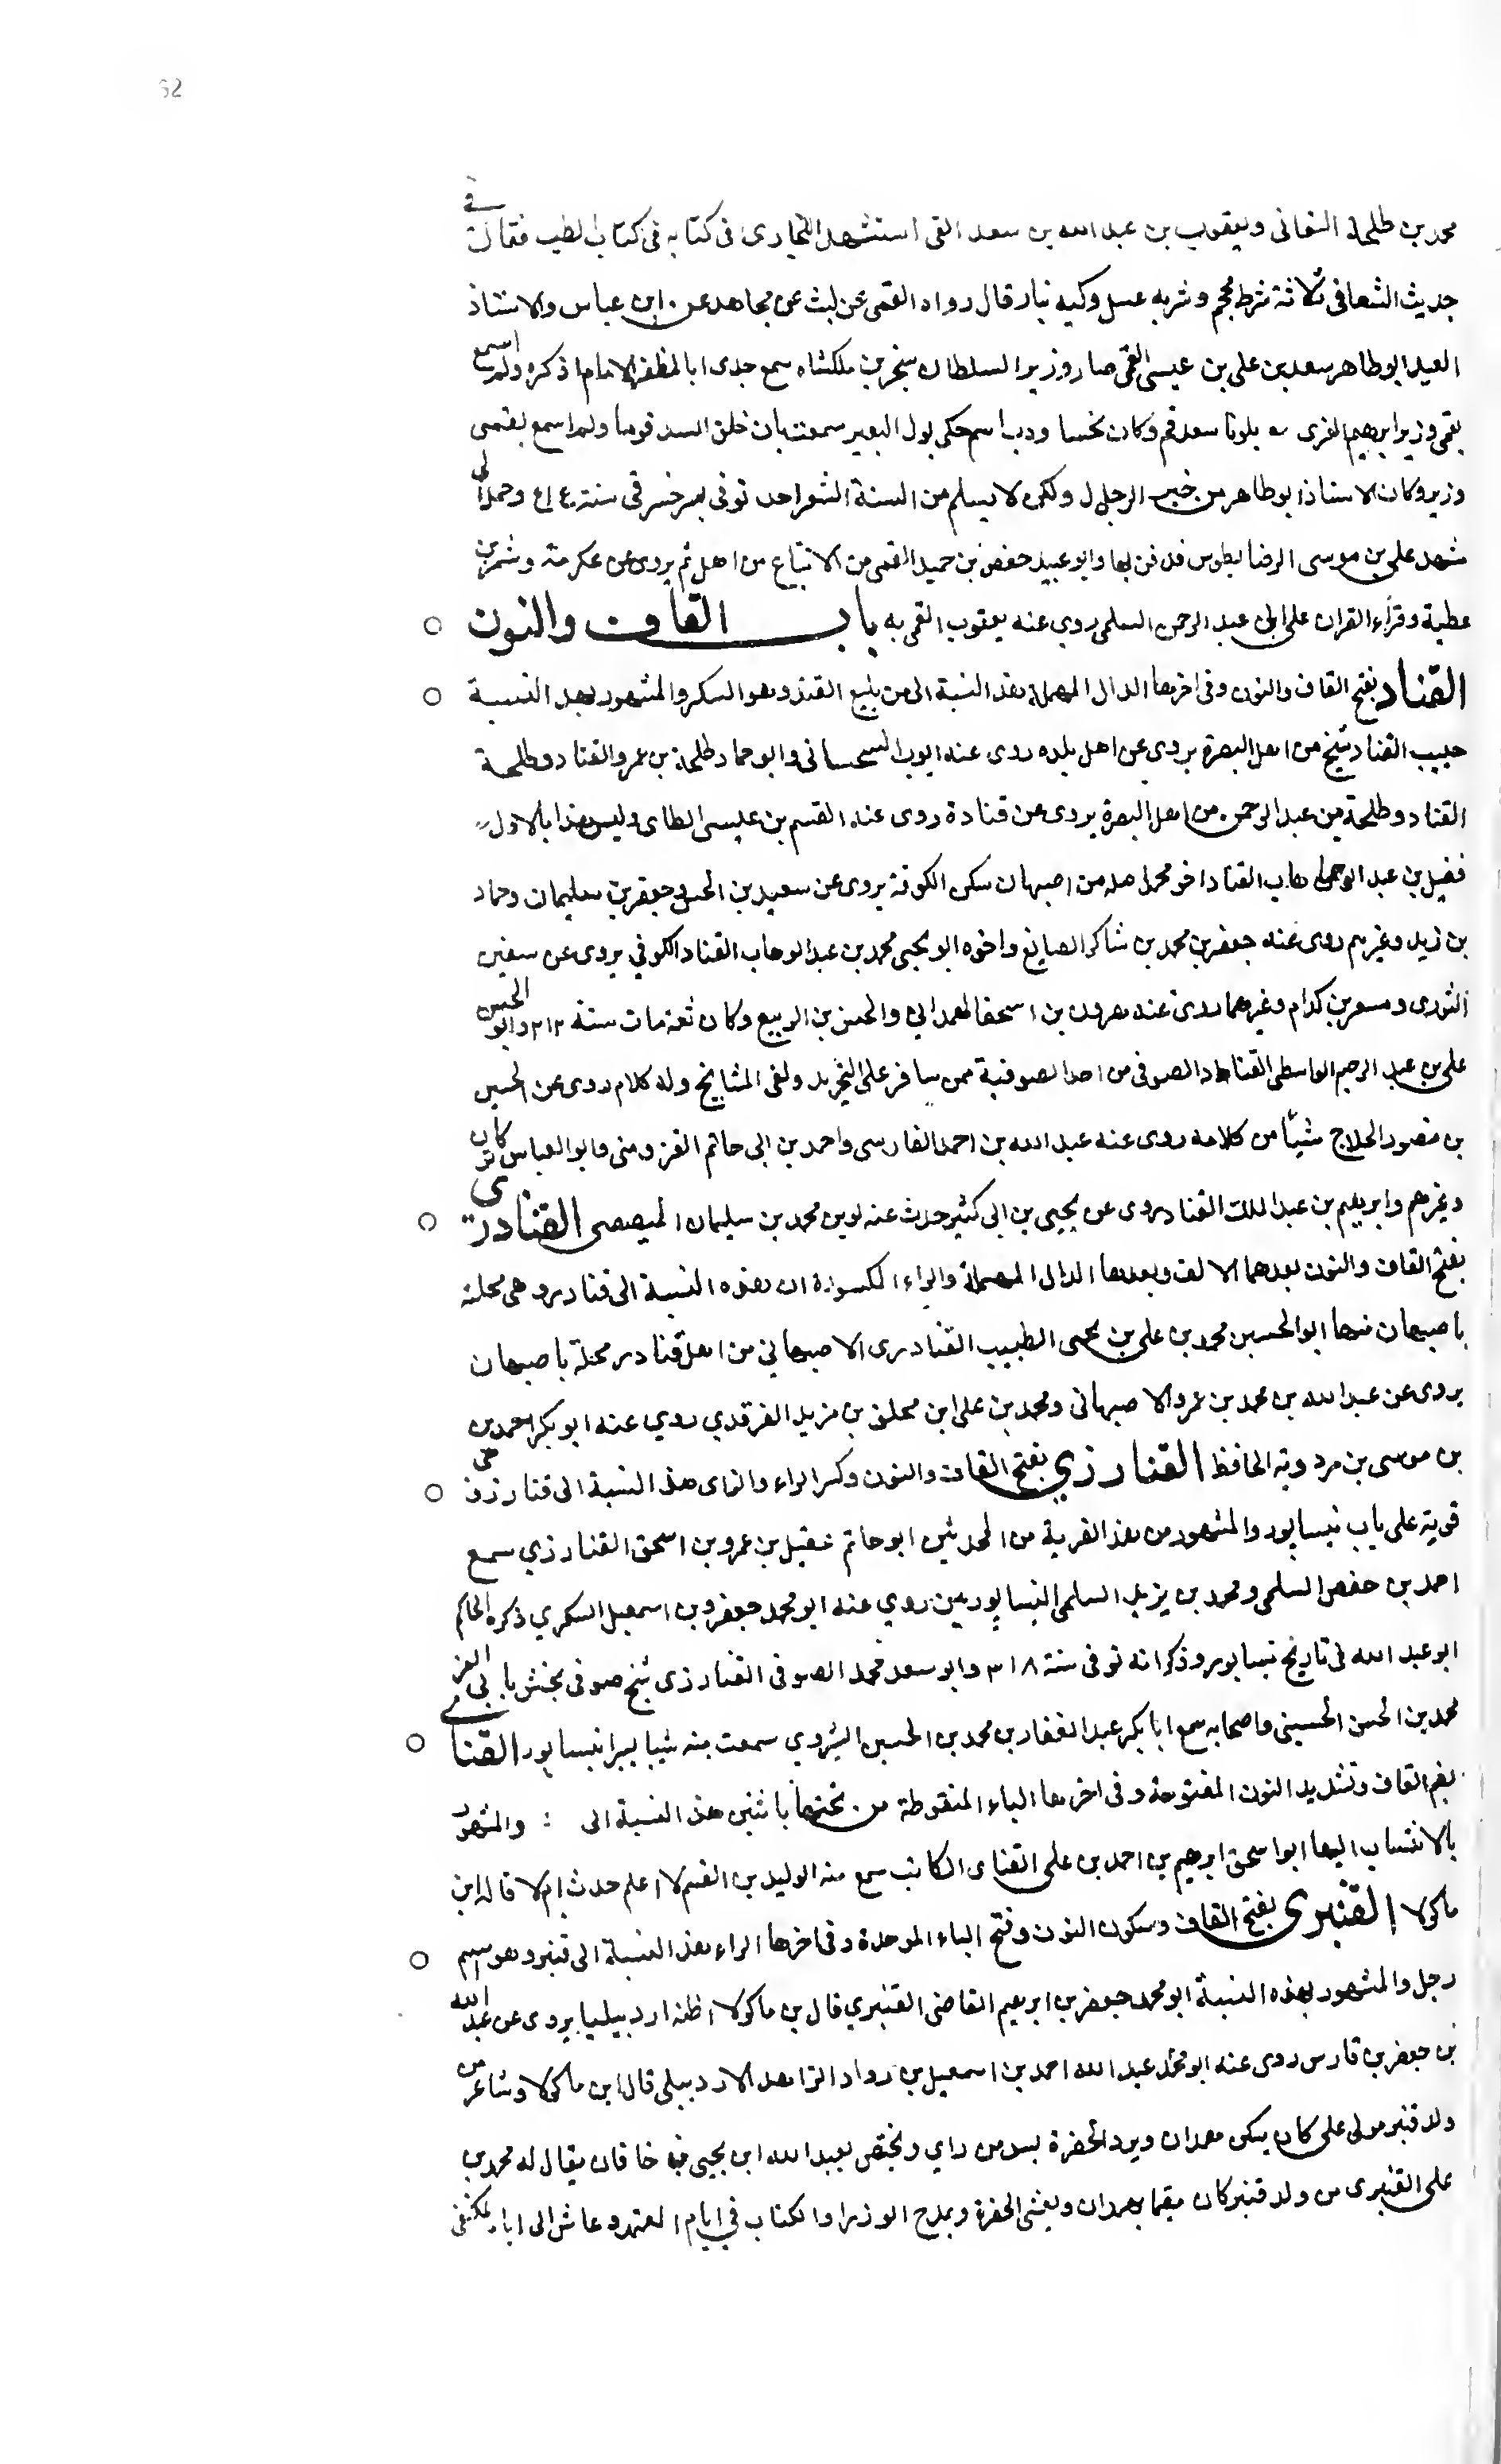 62
محمد بن طلحة النعانى ويعقوب بن عبد الله بن سعد القمى استشهد البخارى فى كتابه فى كتاب الطب فقال فى
حديث الشفا فى ثلاثة شرط محجم وشربه عسل وكيه بنار قال رواه القمى عن ليث عن مجاهد عن ابن عباس والاستاذ
العميد ابو طاهر سعد بن على بن عيسى القمى صار وزير السلطان سنجر بن ملكشاه سمع جدى ابا المظفر الامام ذكره ولم اسمع
بقمى وزير ابرهيم الغزى بلونا سعد قم وكان نحسا ورب اسم حكى بول البعير سمعت بان خلق السد قوما ولم اسمع بقمى
وزير وكان الاستاذ ابو طاهر من خير الرجال ولكن لا يسلم من السنة الشعرا احد توفى بسرخس فى سنة وحمل الى
مشهد على بن موسى الرضا بطوس فدفن بها وابو عبيد حفص بن حميد القمى من الاتباع من اهل قم يروى عن عكرمة وشمر بن
عطية وقراء القران على ابى عبد الرحمن السلمى روى عنه يعقوب القمى به باب القاف والنون
القناد بفتح القاف والنون وفى اخرها الدال المهملة هذ النسبة الى من يبيع القند وهو السكر والمشهور بهذ النسبة
حبيب القناد شيخ من اهل البصرة يروى عن اهل بلده روى عنه ايوب السحسانى وابو حماد طلحة بن عمرو القناد وطلحة
القناد وطلحة بن عبد الرحمن من اهل البصرة يروى عن قتادة روى عنه القسم بن عيسى الطاى وليس هذا بالاول
فضيل بن عبد الوهاب القناد اخو محمد اصله من اصبهان سكن الكوفة يروى عن سعيد بن الحسن وجعفر بن سليمان وحماد
بن زيد وغيرهم روى عنه جعفر بن محمد بن شاكر الصايغ واخوه ابو يحيى محمد بن عبد الوهاب القناد الكوفي يروى عن سفين
الثورى ومسعر بن كدام وغيرهما روى عنه هرون بن اسحق الهمدانى والحسن بن الربيع وكان ثقة مات سنة ٢١٢ وابو الحسن
على بن عبد الرحيم الواسطى القناد الصوفى من احد الصوفية ممن سافر على التجريد ولقى المشايخ وله كلام روى عن الحسين
بن منصور الحلاج شيأ من كلامه روى عنه عبد الله بن احمد الفارسى واحمد بن ابى حاتم القزوينى وابو العباس كان
وغيرهم وابرهيم بن عبد الملك القناد روى عن يحيى بن ابى كثير حدث عنه لوين محمد بن سليمان المصيصى القنادرى
بفتح القاف والنون بعدهما الالف وبعدها الدال المهملة والراء المكسورة ان هذه النسبة الى قنادر وهى محلة
باصبهان منها ابو الحسين محمد بن على بن يحيى الطبيب القنادرى الاصبهاني من اهل قنادر محلة باصبهان
يروى عن عبد الله بن محمد بن عمرو الاصبهانى ومحمد بن على ابن مخلد بن مزيد الفرقدي روي عنه ابو بكر احمد بن
بن موسى بن مردويه الحافظ القنارزي بفتح القاف والنون وكسر الراء والزاى هذ النسبة الى قنارز هى
قرية على باب نيسابور والمشهور من هذ القرية من المحدثين ابو حاتم عقيل بن عمرو بن اسحق القنارزي سمع
احمد بن حفص السلمى ومحمد بن يزيد السلمى النيسابوريين روي عنه ابو محمد جعفر بن اسمعيل السكري ذكره الحاكم
ابو عبد الله فى تاريخ نيسابور وذكر انه توفى سنة ٣١٨ وابو سعد محمد الصوفى القنارزى شيخ صوفى
محمد بن الحسن الحسينى واصحابه سمع ابا بكر عبد الغفار بن محمد بن الحسين الشيروي سمعت منه شيا يسيرا بنيسابور القناى
بضم القاف وتشديد النون المفتوحة وفى اخرها الياء المنقوطة من تحتها باثنين هذ النسبة الى : والمشهور
بالانتساب اليها ابو اسحق ابرهيم بن احمد بن على القناى الكاتب سمع منه الوليد بن القسم لا اعلم حدث ام لا قاله ابن
ماكولا القنبرى بفتح القاف وسكون النون وفتح الباء الموحدة وفى اخرها الراء هذ النسبة الى قنبر وهو اسم
رجل والمشهور بهذه النسبة ابو محمد جعفر بن ابرهيم القاضى القنبري قال بن ماكولا اظنه اردبيليا يروى عن عبد الله
بن جعفر بن فارس روى عنه ابو محمد عبد الله احمد بن اسمعيل بن رواد الزاهد الاردبيلى قال ابن ماكولا وشاعر من
ولد قنبر مولى على كان يسكن همدان ويرد الحضرة بسر من راي ويختص بعبيد الله ابن يحيى بن خاقان يقال له محمد بن
على القنبرى من ولد قنبر كان مقيما بهمدان ويغشى الحضرة ويمدح الوزرا والكتاب فى ايام المعتمد وعاش الى ايام المكتفى